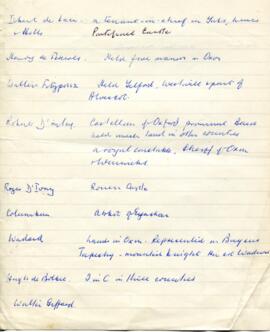 Ilbert de Laci - a tenant-in-chief in Yorks, Lincs
& Notts Pontefract Castle
Henry de Ferrers. Held five manors in Oxon
Walter Fitzponz Held Yelford, Westwell & part of
Alvescot.
Robert D'Oilly. Castellan of Oxford, prominent Baron
held much land in other counties
a royal constable, Sheriff of Oxon
& Warwicks
Roger D'Ivory Rouen Castle
Columban Abbot of Eynsham
Wadard Lands in Oxon. Represented in Bayeux
Tapestry - mounted knight Hic est Wadard
Hugh de Bolbec. T in C in three counties
Walter Giffard.